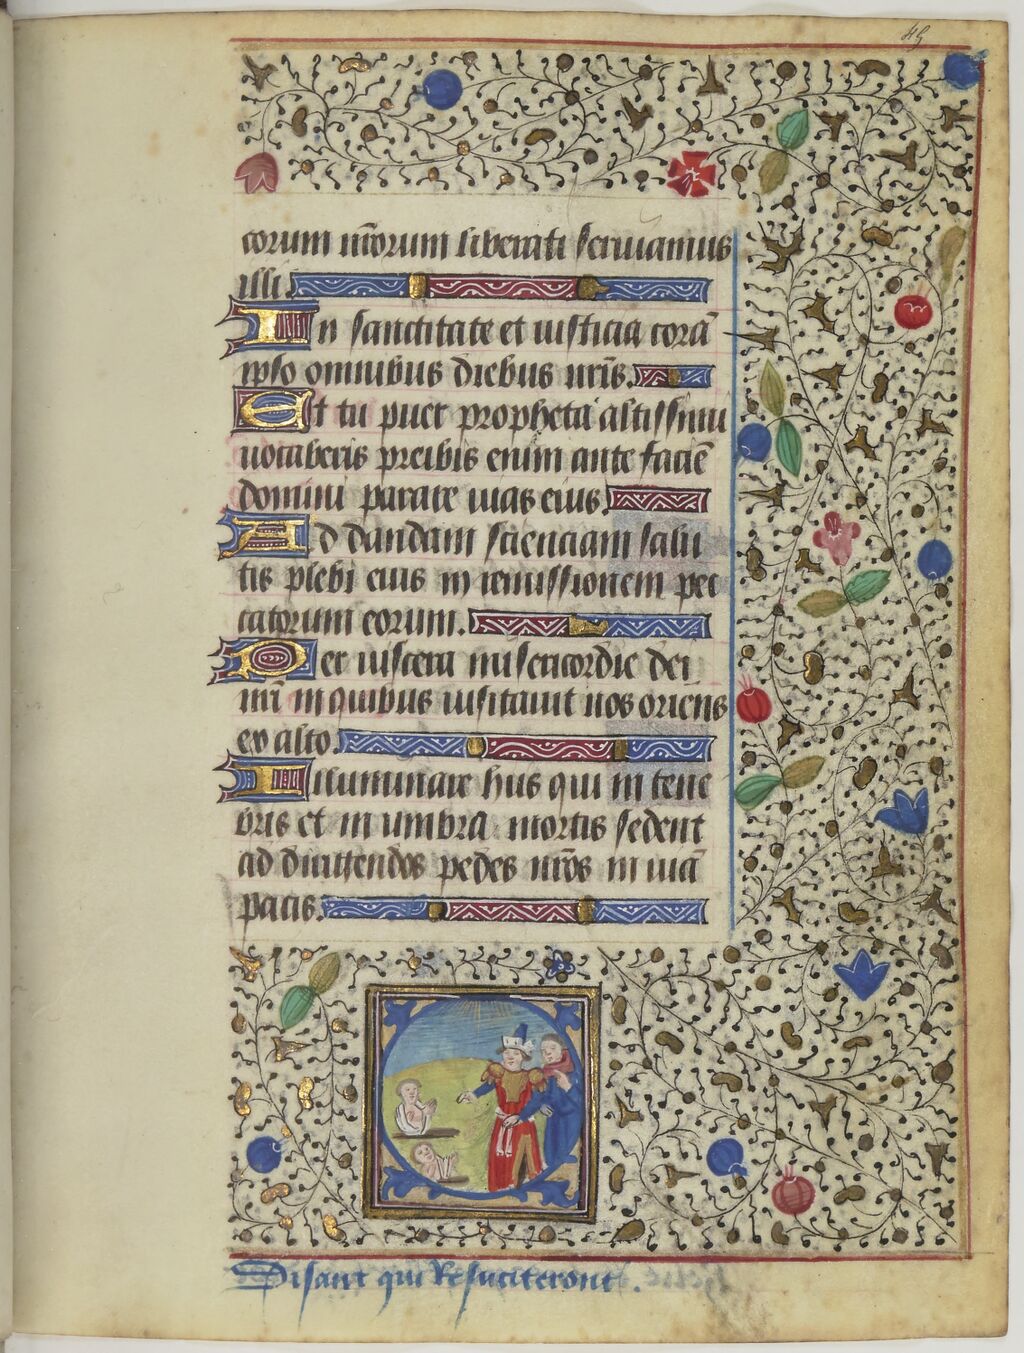 49
corum n̅rorum liberati seruiamus
illi.
In sanctitate et iusticia corā
ipso omnibus diebus nr̄is.
Et tu puer propheta altissimi
uocaberis preibis enim ante faciē
domini parare uias eius.
Ad dandam scienciam salu
tis plebi eius in remissionem pec
catorum eorum.
Per uiscera misericordie dei
nr̄i in quibus uisitauit nos oriens
ex alto.
Illuminare hiis qui in tene
bris et in umbra mortis sedent
ad dirigendos pedes nr̄os in uiā
pacis.
Disant qui Resuciteront.